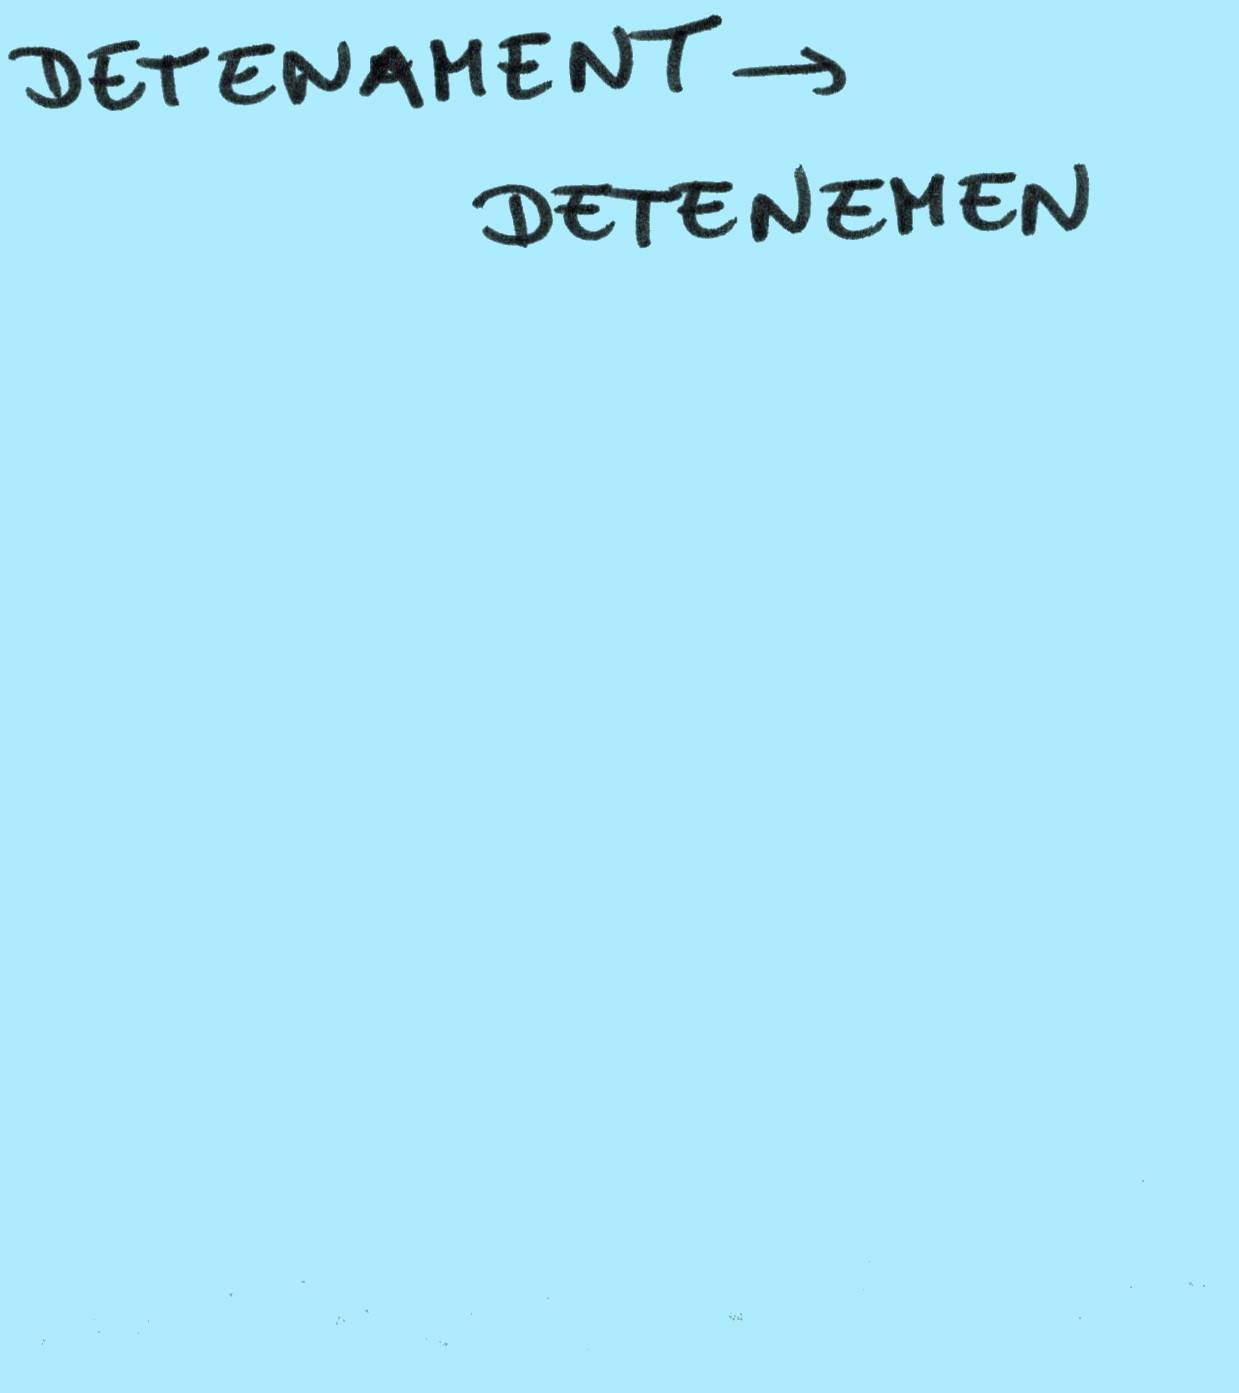 DETENAMENT →
DETENEMEN